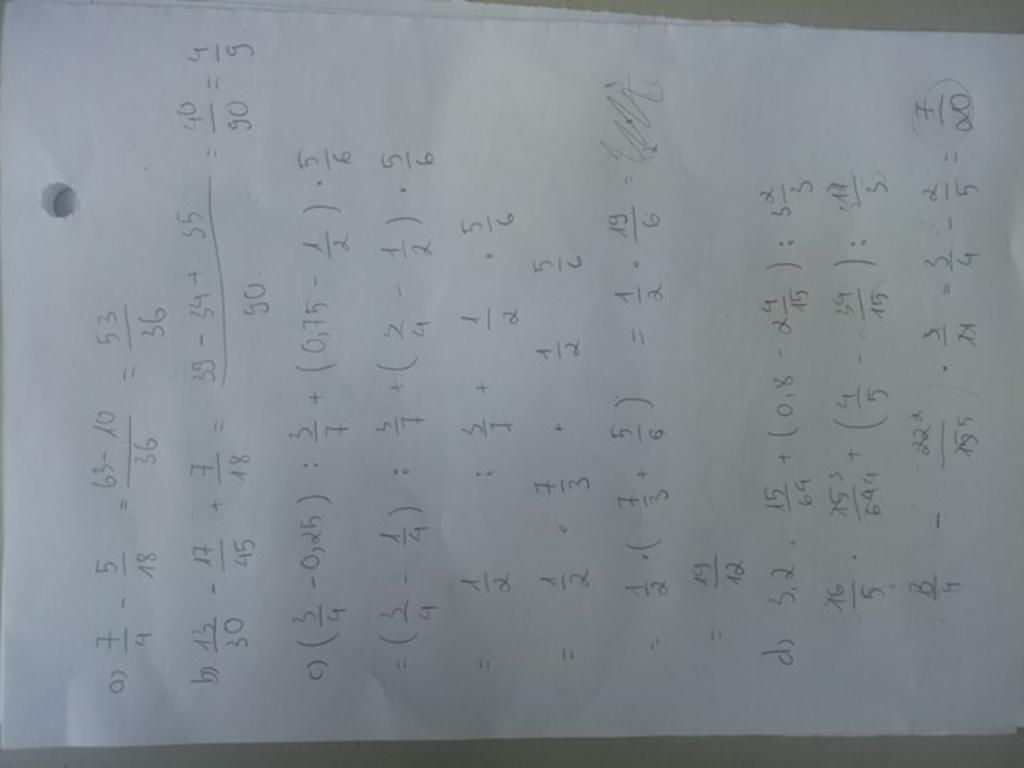 a) 7/4 - 5/18 = 63-10/36 = 53/36
b) 13/30 - 17/45 + 7/18 = 39-34+35/90 = 40/90 = 4/9
c) (3/4 - 0,25) : 3/7 + (0,75 - 1/2) · 5/6
= (3/4 - 1/4) : 3/7 + (3/4 - 1/2) · 5/6
= 1/2 : 3/7 + 1/2 · 5/6
= 1/2 · 7/3 + 1/2 5/6
= 1/2 · (7/3 + 5/6) = 1/2 · 19/6 =
= 19/12
d) 3,2 · 15/64 + (0,8 - 2 4/15) : 3 2/3
16/5 · 15 3/64 4 + (4/5 - 34/15) : 11/3
3/4 - 22 2/15 5 ) · 3/11 = 3/4 - 2/5 = 7/20